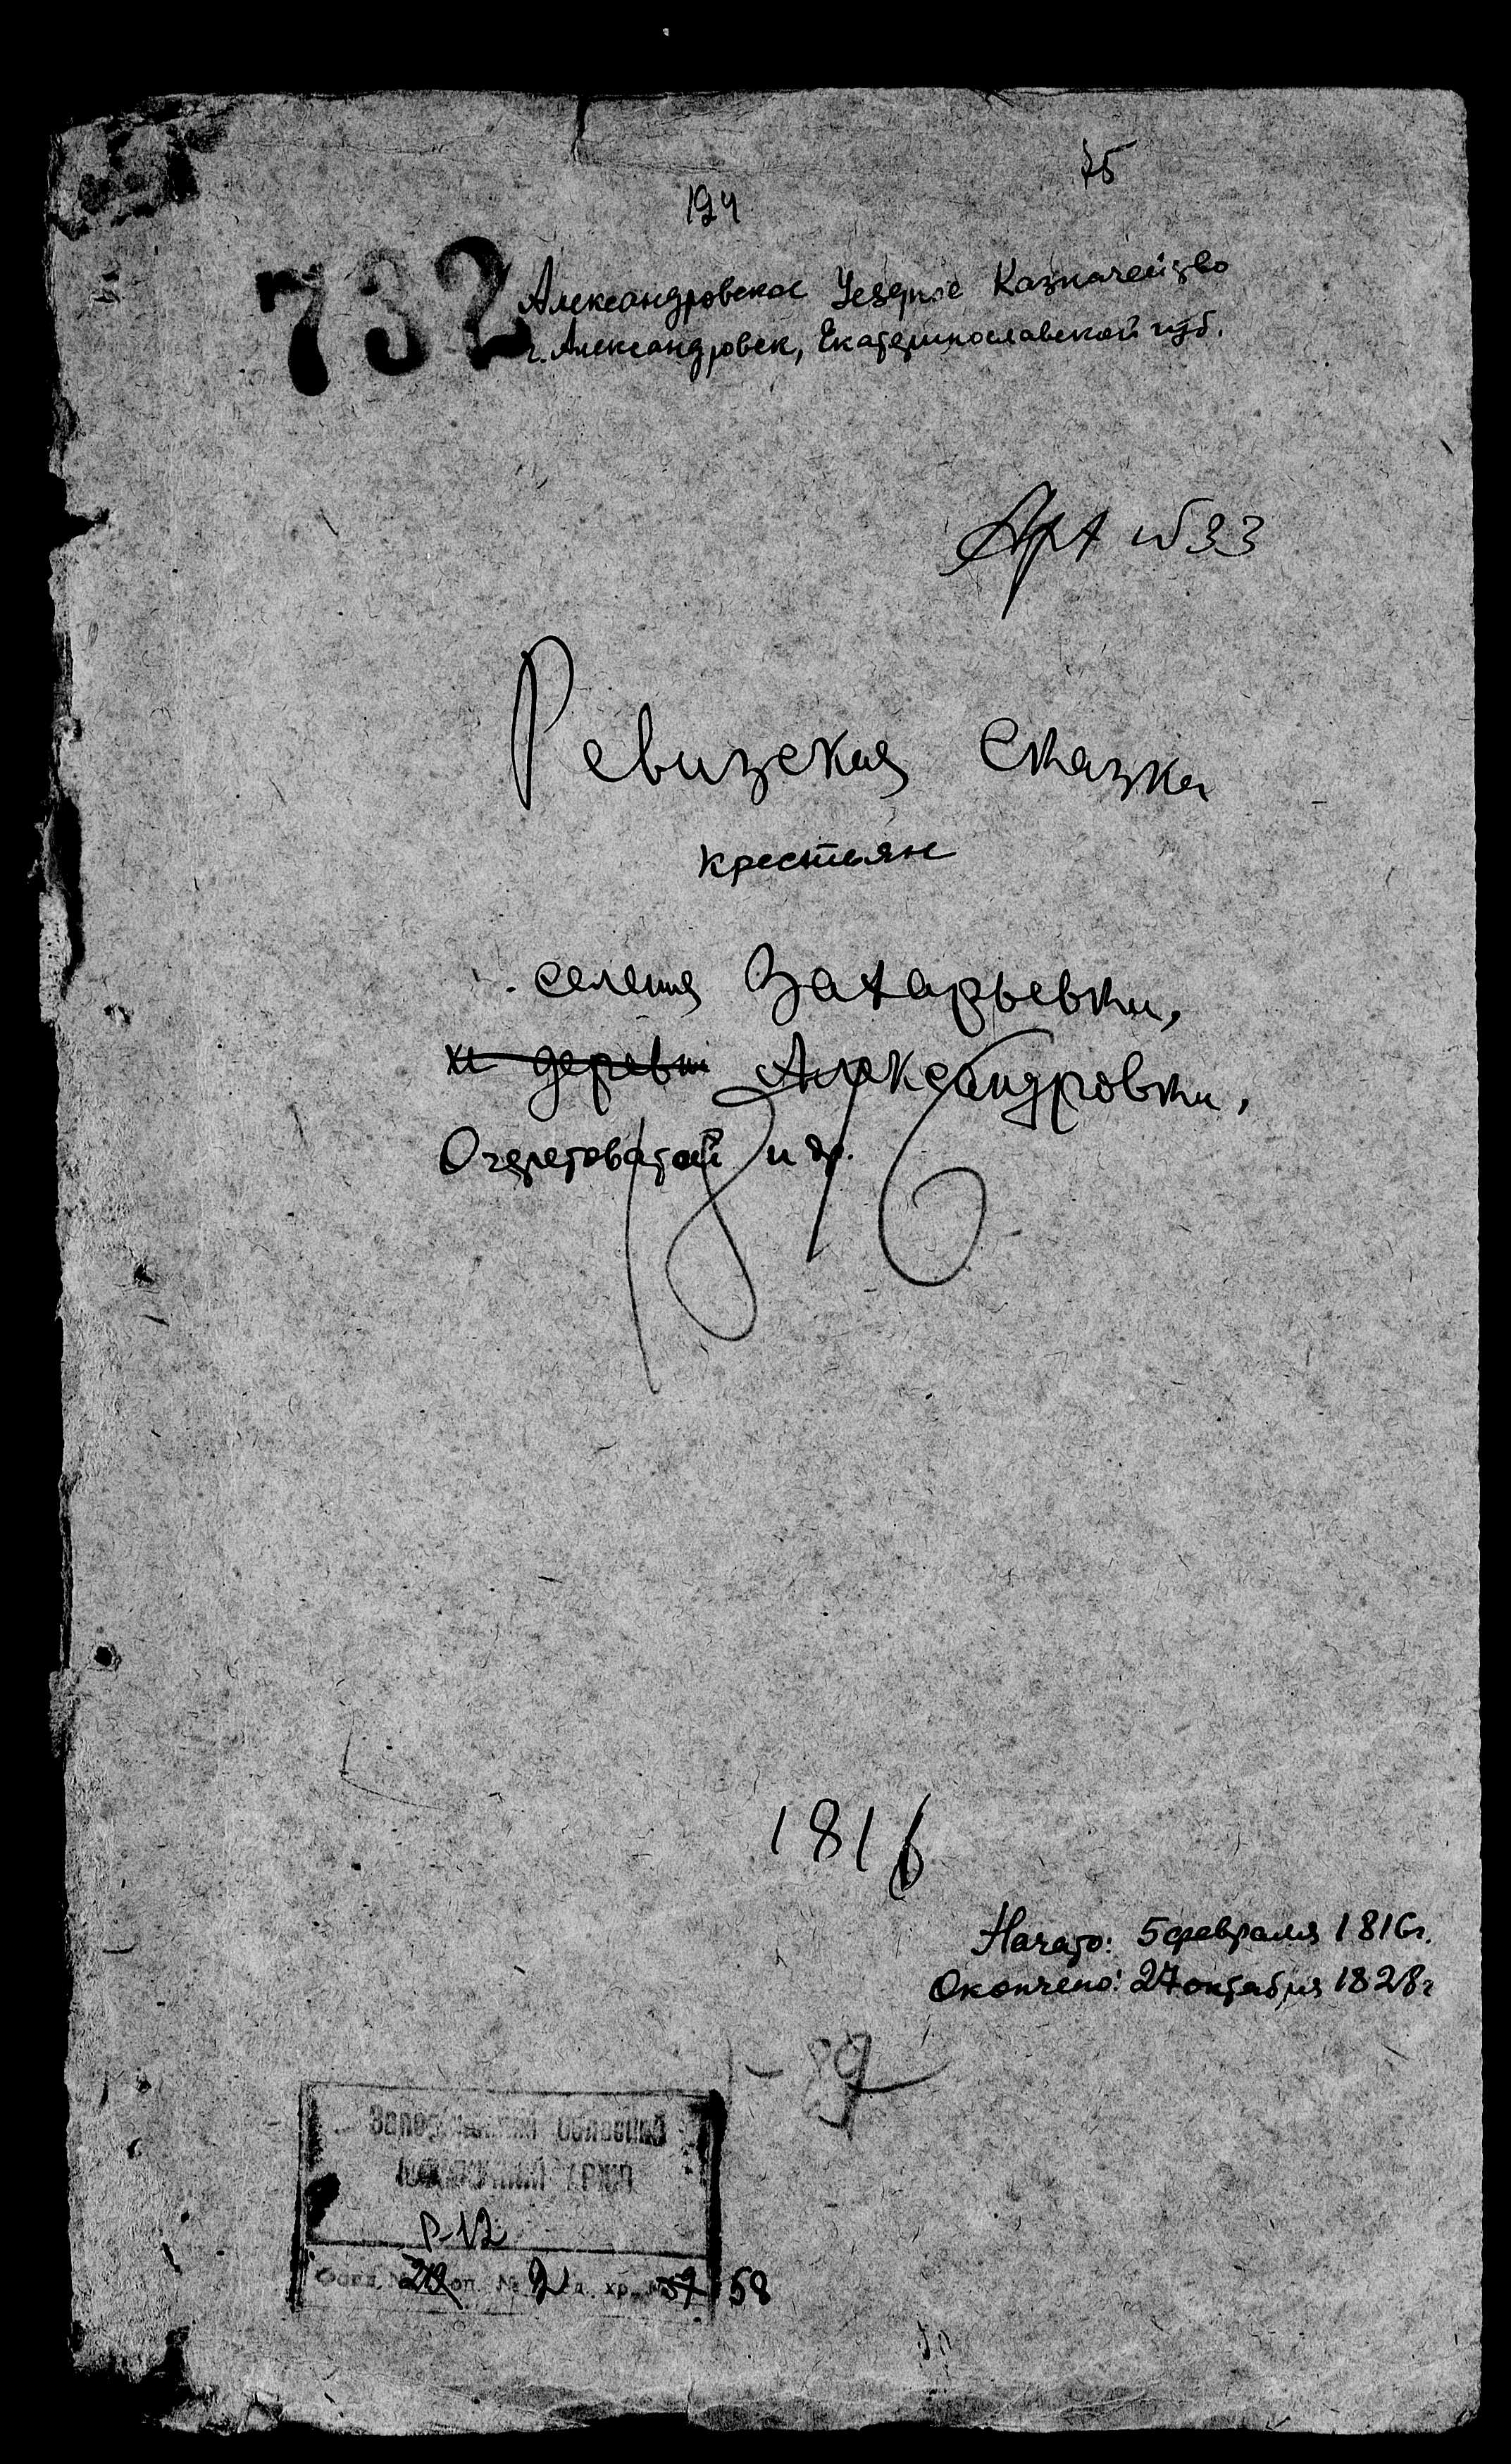 75
194
732
Александровское Уездное Казначейство
г. Александровск, Екатеринославской губ.
Арх №33
Ревизская Сказка
крестьян
селения Захарьевки,
и деревни Александровки,
Очеретоватой и др.
1816
1816
Начато: 5 февраля 1816г.
Окончено: 27 октября 1828г
Запорожский Областной
АРХИВ
Р-12
Фонд № оп. № 2 д. хр. 57 58